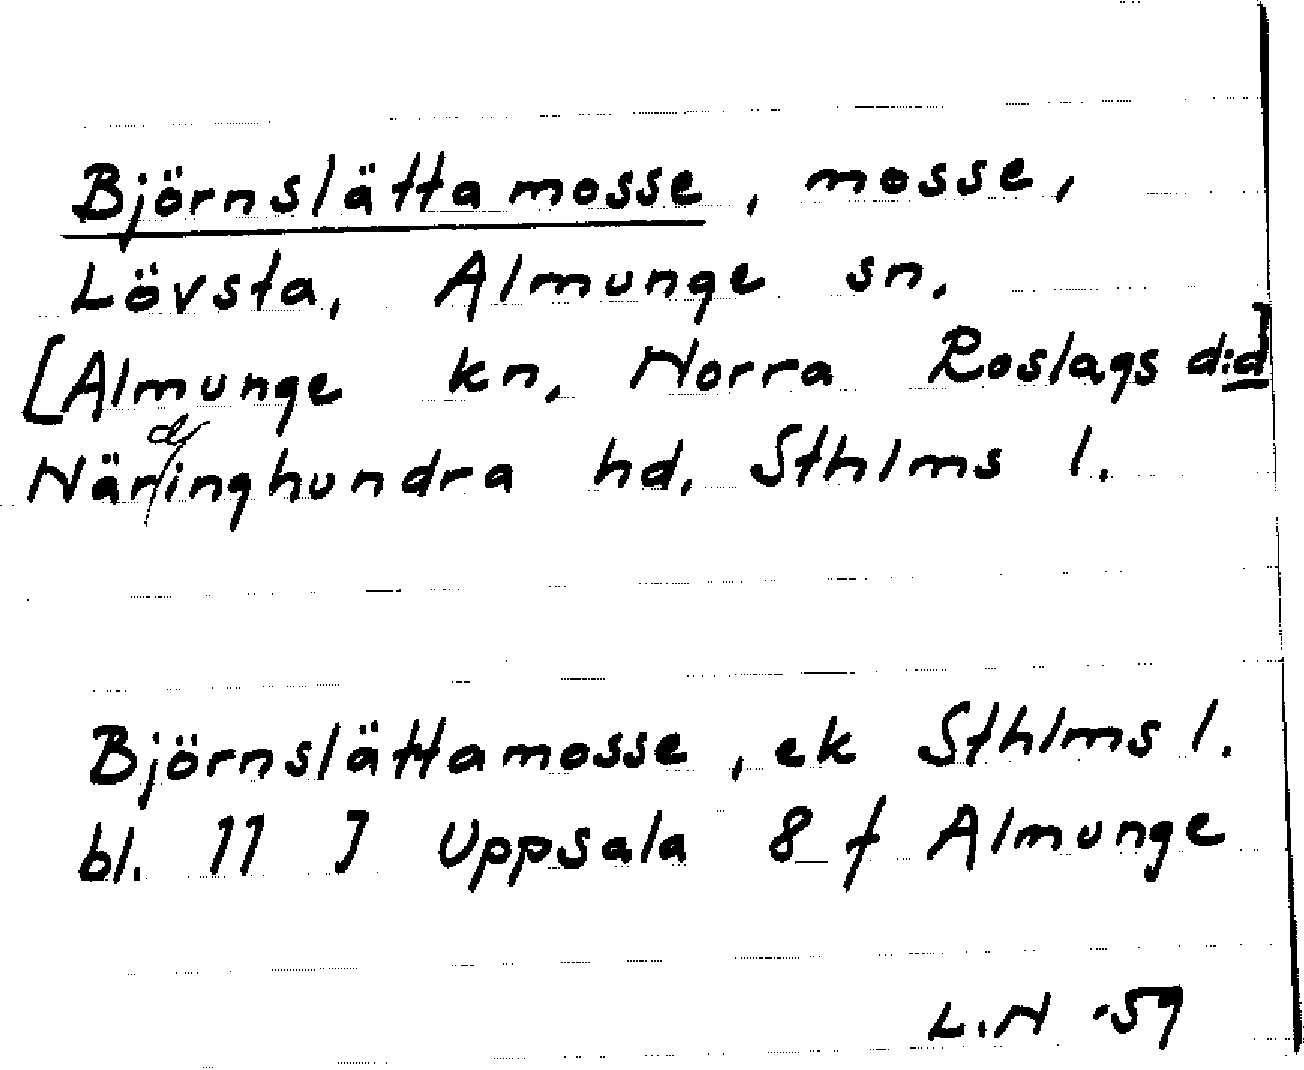 Björnslättamosse, mosse,
Lövsta, Almunge sn,
[Almunge kn, Norra Roslags d:d]
Närdinghundra hd, Sthlms l.
Björnslättamosse, ek Sthlms l.
bl. 11 J Uppsala 8 f Almunge
L.N -59